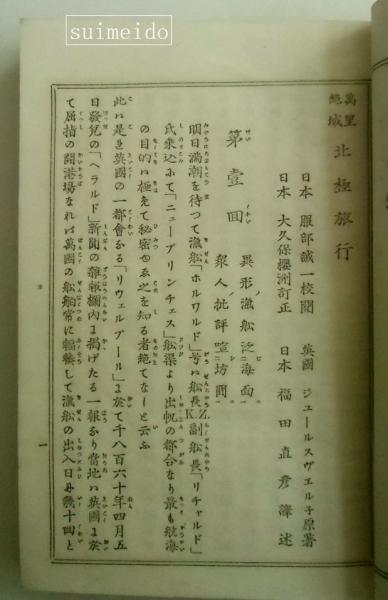 suimeido
萬里絶域 北極旅行
日本 服部誠一校閲 英國 ジュールスヴェルネ原著
日本 大久保櫻洲訂正 日本 福田直彦譯述
第壹回 異形漁舩泛海面
衆人批評喧坊間
明日満潮を待つて漁舩「ホルワルド」号ハ舩長K.Z.副舩長「リチャルド」
氏乗込ホて「ニュープリンチェス」舩渠より出帆の都合なり最も航海
の目的ハ極えて秘密ゆゑ之を知る者絶てなしと云ふ
此ハ是を英國の一都會なる「リウェルプール」ま於て千八百六十年四月五
日發兌の「ヘラルド」新聞の雜報欄内ま掲げたる一報なり當地ハ英國ま於
て屈指の開港場なれハ萬國の舩舶常に輻輳して漁舩の出入日み幾十回と
一